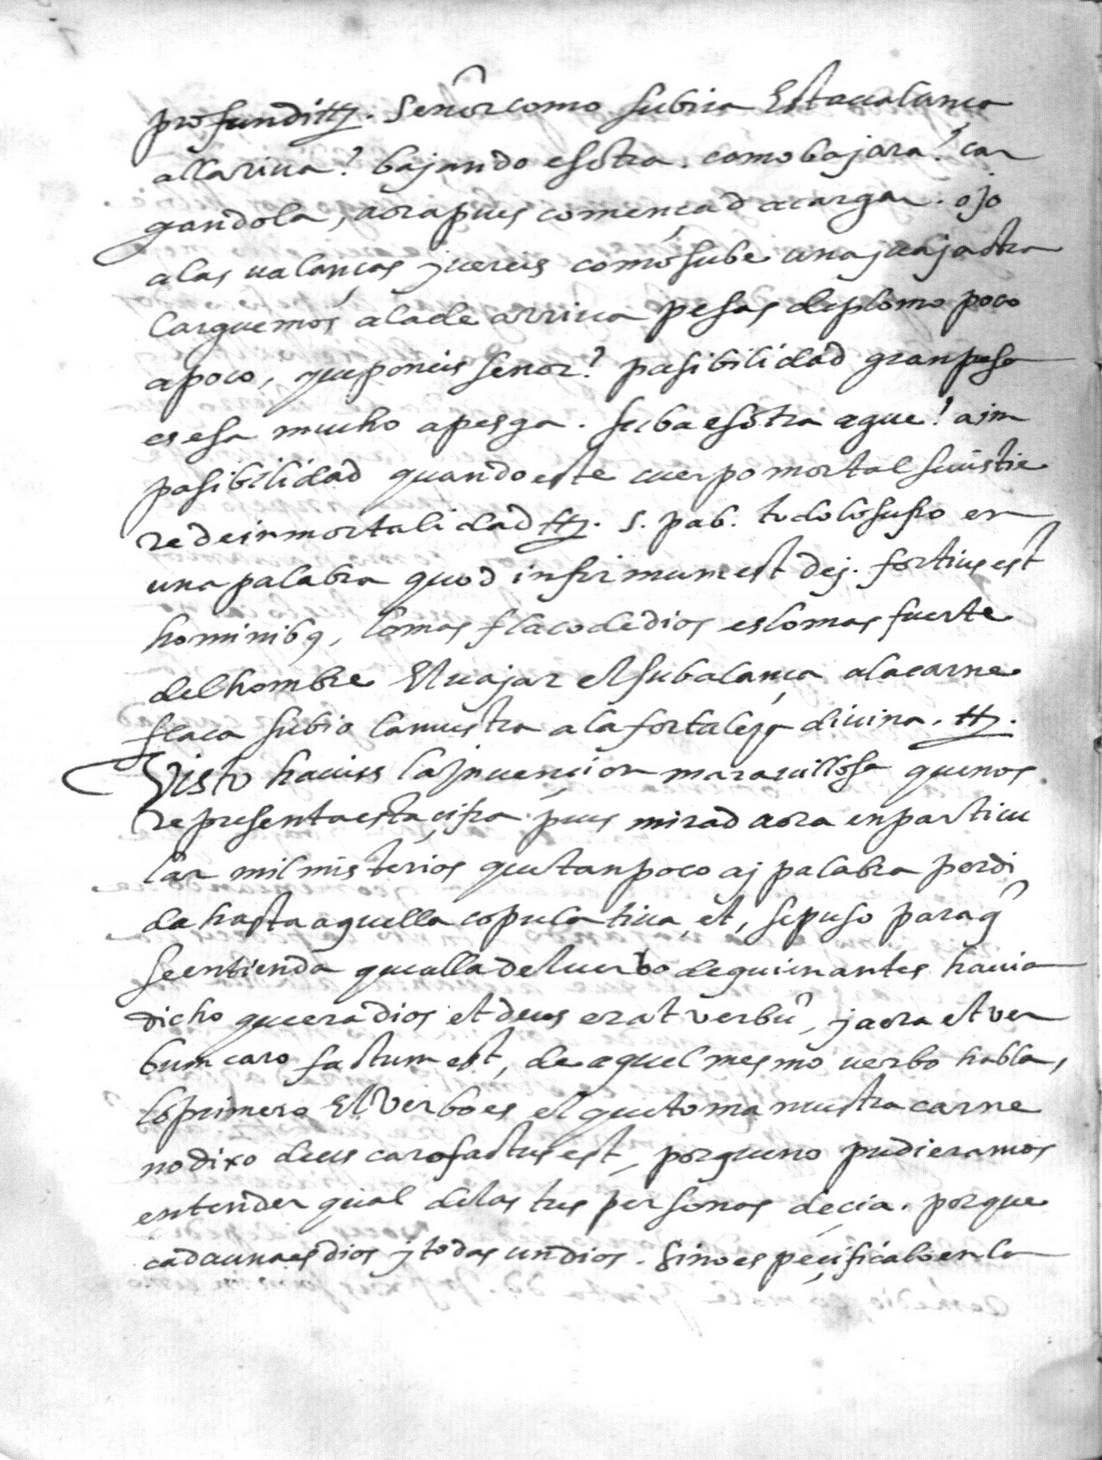 profundi etc. Señor como subira Esta valança
allariua? bajando esotra. como bajara? car
gandola, aora pues començad a cargar. ojo
a las valanças y uereis como sube una y uaja otra
Carguemos a la de arriua pesas de plomo poco
a poco, que poneis señor? pasibilidad gran peso
es esa mucho apesga. suba esotra a que? a im
pasibilidad quando este cuerpo mortal se uistie
re de inmortalidad etc. S. pab. todo lo sufio en
una palabra quod infirmum est dej. fortius est
hominibq, lo mas flaco de dios es lo mas fuerte
del hombre El uajar el su balança a la carne
flaca subio la nuestra a la fortaleza diuina. etc.
Visto haueis la jnuencion marauillosa que nos
representa esta çifra pues mirad aora en particu
lar mil misterios que tanpoco aj palabra perdi
da hasta aquella copulatiua, et, se puso para q̃
se entienda que alla del uerbo de quien antes hauia
dicho que era dios et deus erat verbũ, y aora et ver
bum caro factum est, de aquel mesmo uerbo habla,
lo primero El Verbo es el que toma nuestra carne
no dixo deus caro factus est, porque no pudieramos
entender qual de las tres personas deçia. porque
cada una es dios y todas un dios. Sino espeçificalo en la